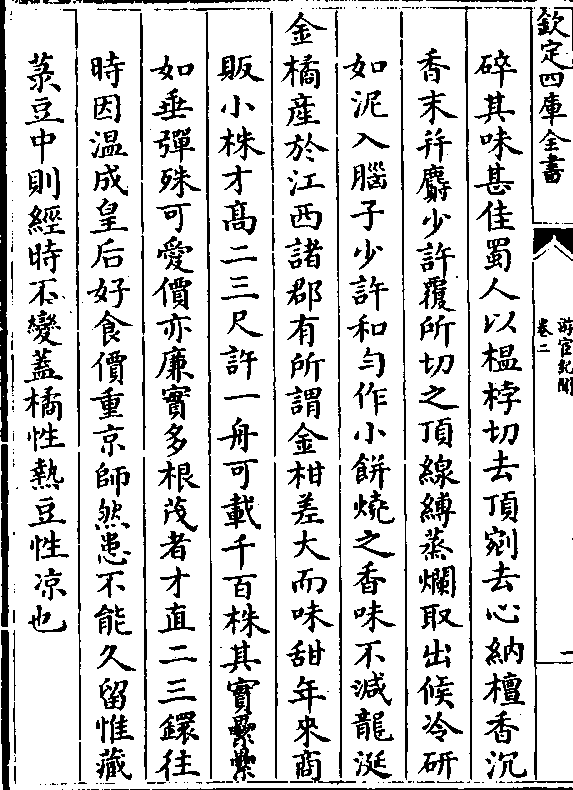 欽定四庫全書
游宦紀聞
卷二
一
碎其味甚佳蜀人以榲桲切去頂剜去心納檀香沉
香末并麝少許覆所切之頂線縛蒸爛取出候冷研
如泥入腦子少許和勻作小餅燒之香味不減龍涎
金橘產於江西諸郡有所謂金柑差大而味甜年來商
販小株才高二三尺許一舟可載千百株其實纍纍
如垂彈殊可愛價亦廉實多根茂者才直二三鐶往
時因温成皇后好食價重京師然患不能久留惟藏
菉豆中則經時不變蓋橘性熱豆性凉也